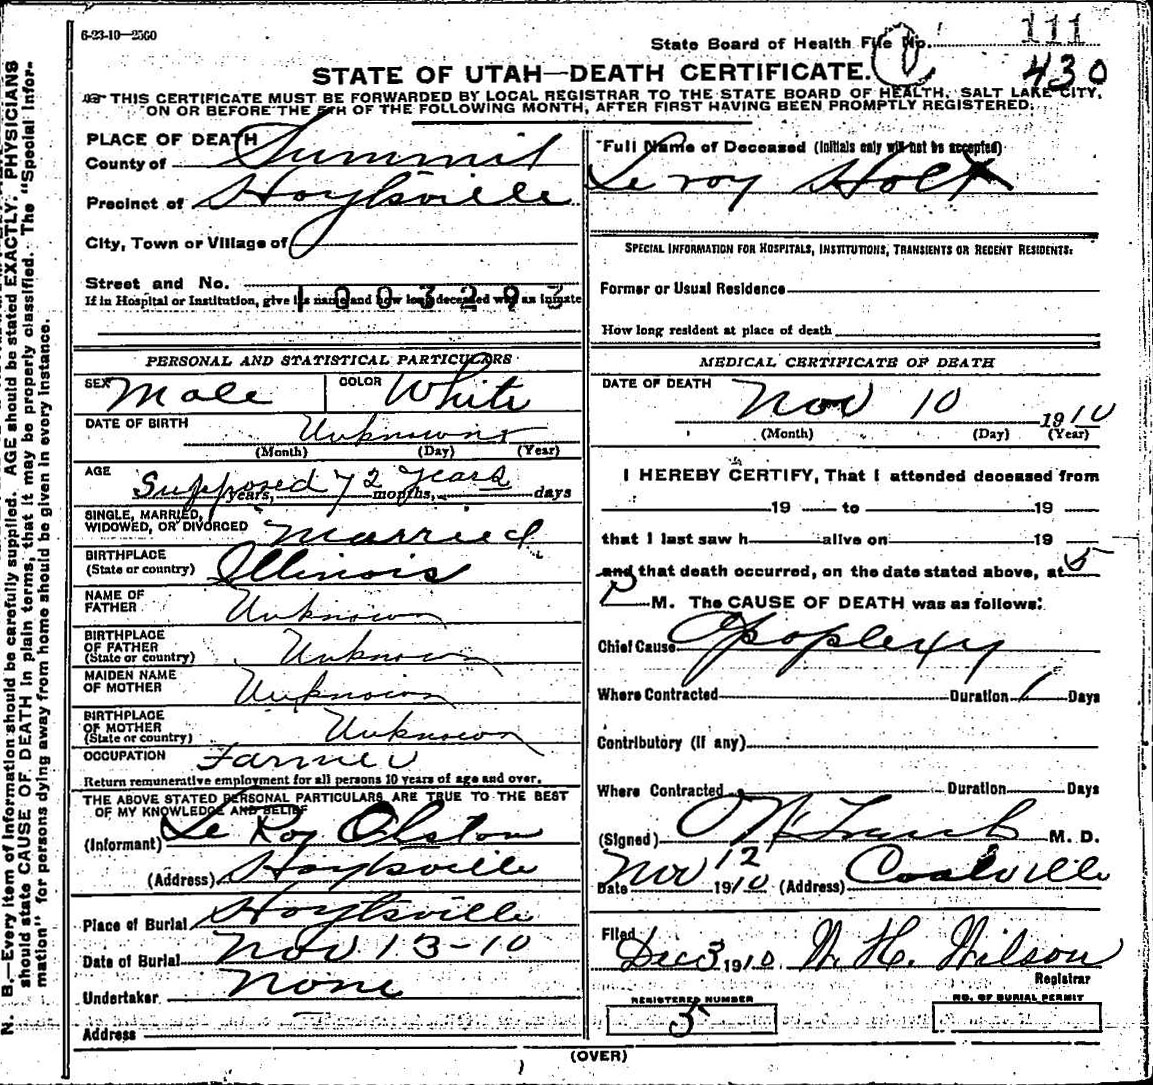 6-23-10—2500
State Board of Health File No. 111
430
STATE OF UTAH—DEATH CERTIFICATE.
THIS CERTIFICATE MUST BE FORWARDED BY LOCAL REGISTRAR TO THE STATE BOARD OF HEALTH, SALT LAKE CITY,
ON OR BEFORE THE 5TH OF THE FOLLOWING MONTH, AFTER FIRST HAVING BEEN PROMPTLY REGISTERED.
PLACE OF DEATH
County of Summit
Precinct of Hoytsville
City, Town or Village of
Street and No.
If in Hospital or Institution, give its name and how long deceased was an inmate
1003293
PERSONAL AND STATISTICAL PARTICULARS
SEX Male COLOR White
DATE OF BIRTH Unknown
(Month) (Day) (Year)
AGE Supposed 72 years
years, months, days
SINGLE, MARRIED,
WIDOWED, OR DIVORCED Married
BIRTHPLACE
(State or country) Illinois
NAME OF
FATHER Unknown
BIRTHPLACE
OF FATHER
(State or country) Unknown
MAIDEN NAME
OF MOTHER Unknown
BIRTHPLACE
OF MOTHER
(State or country) Unknown
OCCUPATION Farmer
Return remunerative employment for all persons 10 years of age and over.
THE ABOVE STATED PERSONAL PARTICULARS ARE TRUE TO THE BEST
OF MY KNOWLEDGE AND BELIEF
(Informant) Le Roy Olston
(Address) Hoytsville
Place of Burial Hoytsville
Date of Burial Nov 13-10
Undertaker None
Address
Full Name of Deceased (Initials only will not be accepted)
Le roy Holt
SPECIAL INFORMATION FOR HOSPITALS, INSTITUTIONS, TRANSIENTS OR RECENT RESIDENTS:
Former or Usual Residence
How long resident at place of death
MEDICAL CERTIFICATE OF DEATH
DATE OF DEATH Nov 10 1910
(Month) (Day) (Year)
I HEREBY CERTIFY, That I attended deceased from
19 to 19
that I last saw h alive on 19
and that death occurred, on the date stated above, at 5
P M. The CAUSE OF DEATH was as follows:
Chief Cause Apoplexy
Where Contracted Duration 1 Days
Contributory (if any)
Where Contracted Duration Days
(Signed) M. D.
Date Nov 12 1910 (Address) Coalville
Filed Dec 3 1910 W. H. Wilson
Registrar
REGISTERED NUMBER NO. OF BURIAL PERMIT
5
(OVER)
N. B.—Every item of information should be carefully supplied. AGE should be stated EXACTLY. PHYSICIANS
should state CAUSE OF DEATH in plain terms, that it may be properly classified. The "Special Infor-
mation" for persons dying away from home should be given in every instance.